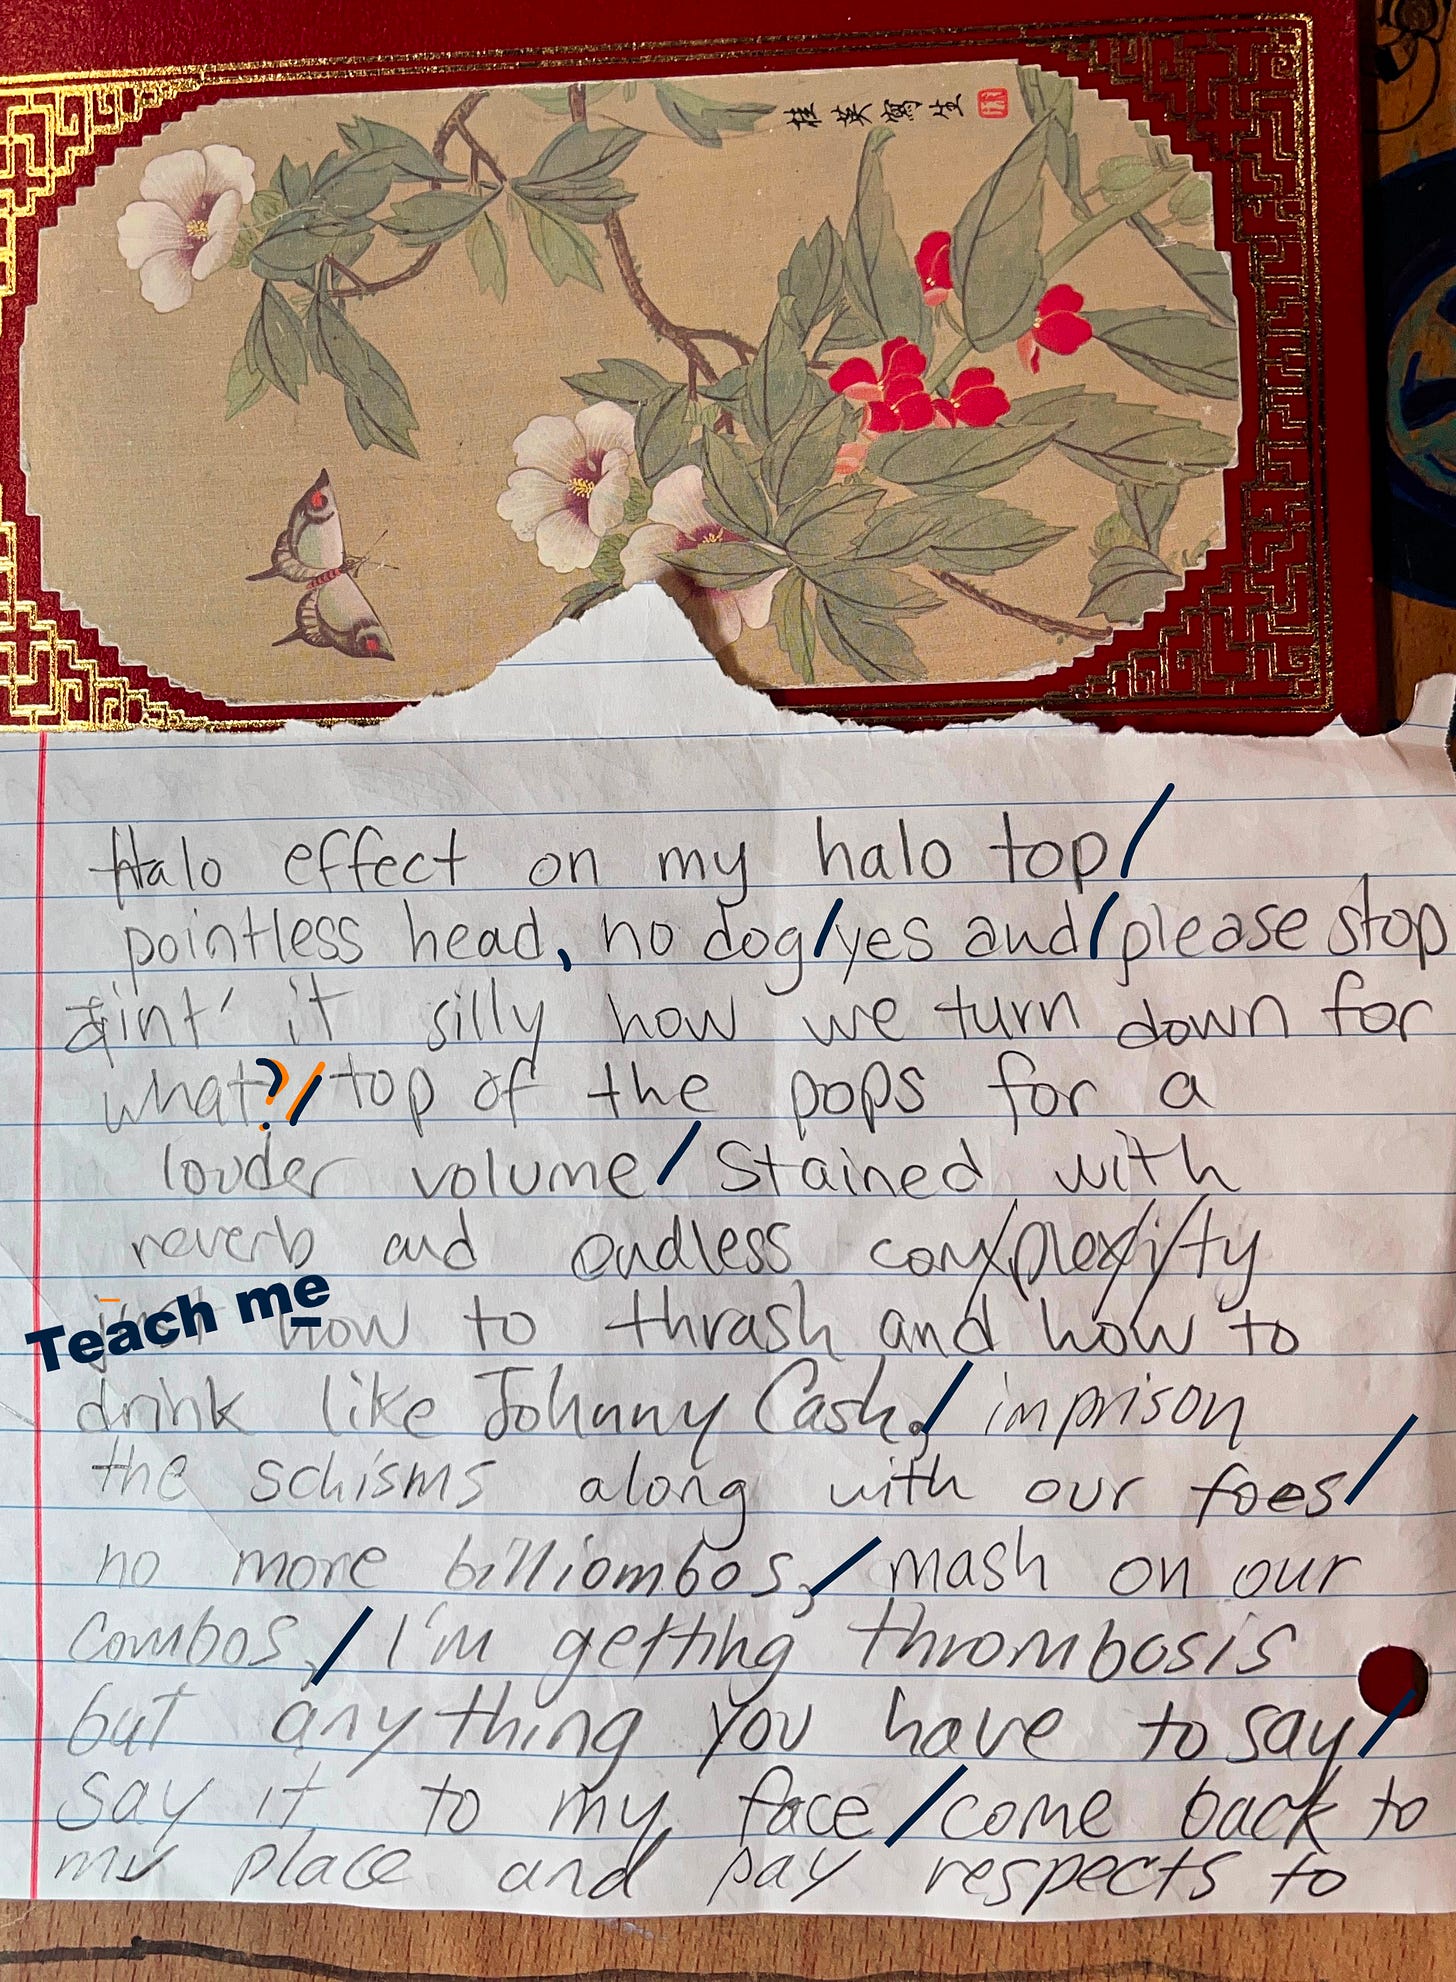 桂英寫生
Halo effect on my halo top/
pointless head, no dog/yes and/please stop
aint' it silly how we turn down for
what?/top of the pops for a
louder volume/Stained with
reverb and endless com/plex/i/ty
Teach me how to thrash and how to
drink like Johnny Cash,/ imprison
the schisms along with our foes/
no more billiombos,/mash on our
combos,/I'm getting thrombosis
but anything you have to say/
say it to my face/come back to
my place and pay respects to